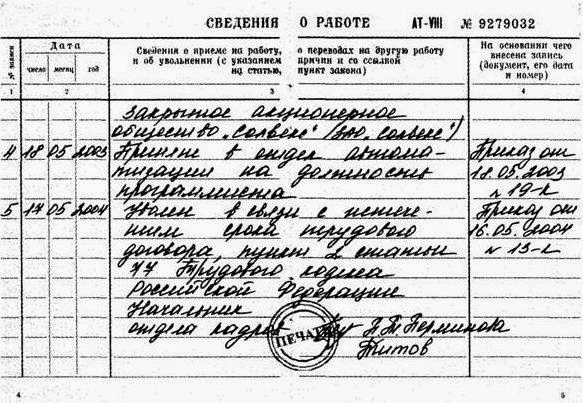 СВЕДЕНИЯ О РАБОТЕ АТ-VIII № 9279032
№ записи
Дата
число месяц год
Сведения о приеме на работу, о переводах на другую работу
и об увольнении (с указанием причин и со ссылкой
на статью, пункт закона)
На основании чего
внесена запись
(документ, его дата
и номер)
1 2 3 4
Закрытое акционерное
общество „Солвекс" (ЗАО „Солвекс")
4 18 05 2003 Принят в отдел автома- Приказ от
тизации на должность 18.05.2003
программиста № 19-к
5 17 05 2004 Уволен в связи с истече- Приказ от
нием срока трудового 16.05.2004
договора, пункт 2 статьи № 13-к
77 Трудового кодекса
Российской Федерации
Начальник
отдела кадров П.Т. Перминова
ПЕЧАТЬ
Титов
4 5